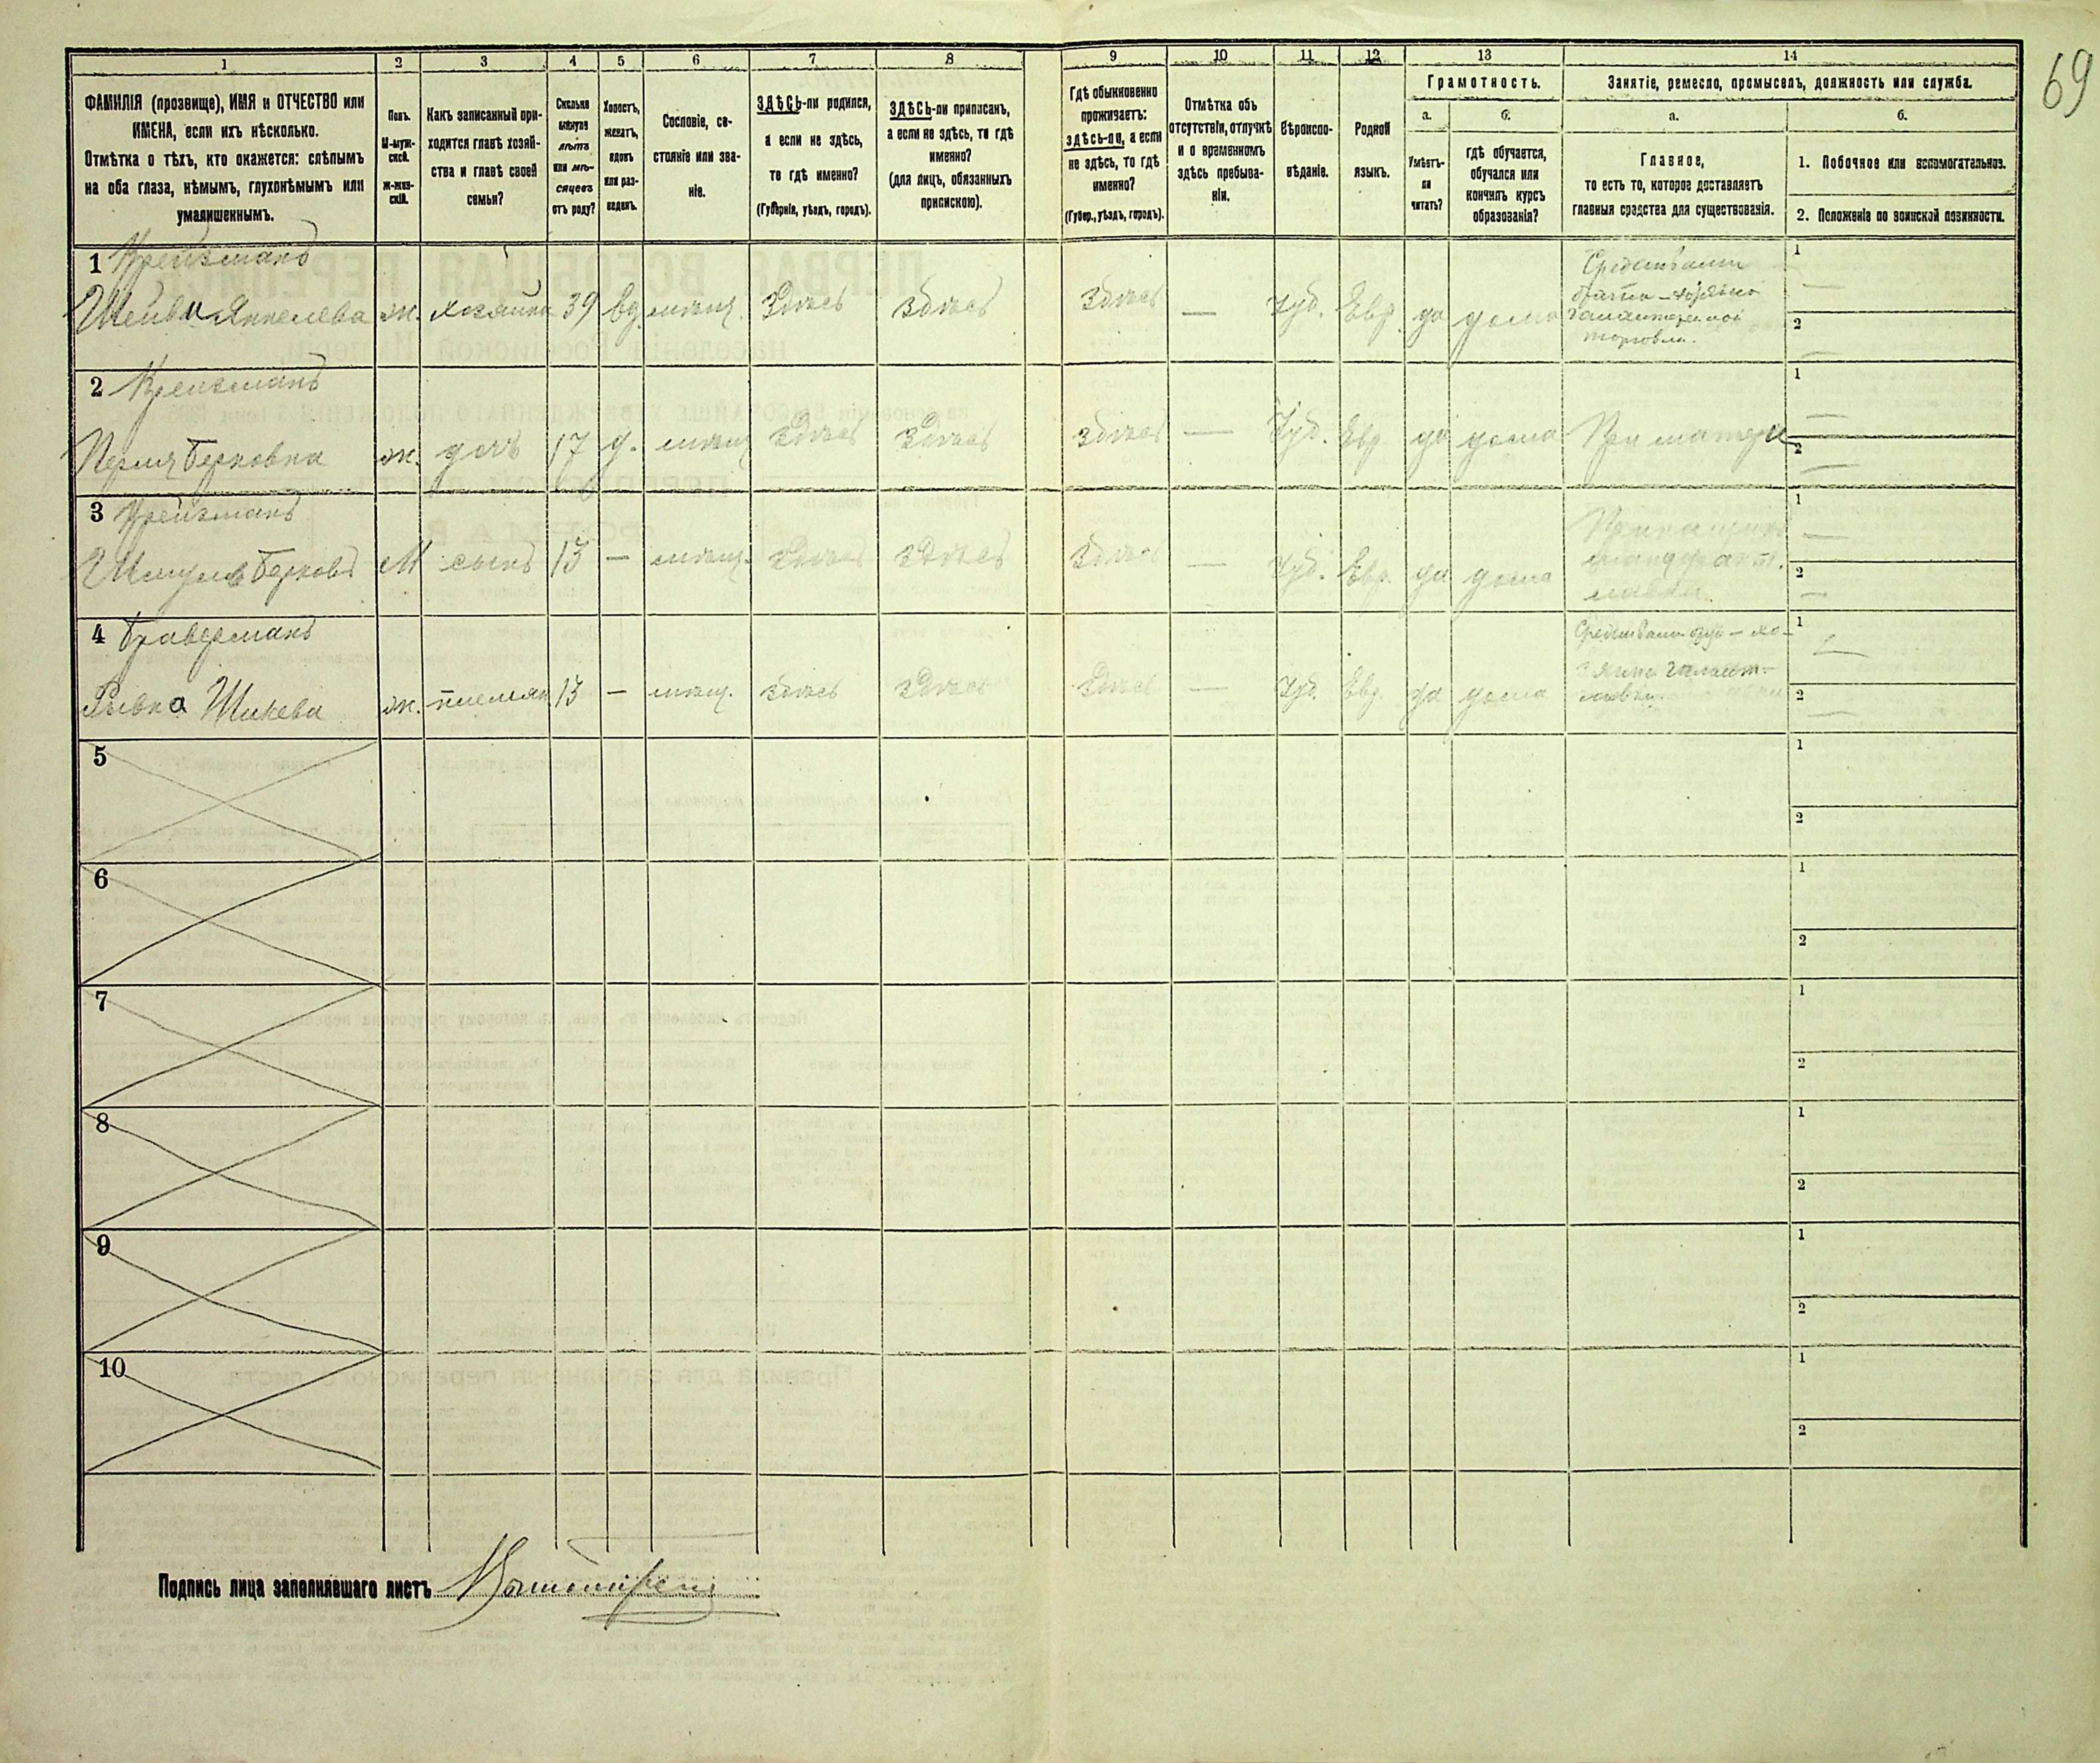 69
1 2 3 4 5 6 7 8 9 10 11 12 13 14
ФАМИЛІЯ (прозвище), ИМЯ и ОТЧЕСТВО или
ИМЕНА, если ихъ нѣсколько.
Отмѣтка о тѣхъ, кто окажется: слѣпымъ
на оба глаза, нѣмымъ, глухонѣмымъ или
умалишеннымъ.
Полъ.
М-муж-
ской.
Ж-жен-
скій.
Какъ записанный при-
ходится главѣ хозяй-
ства и главѣ своей
семьи?
Сколько
минуло
лѣтъ
или мѣ-
сяцевъ
отъ роду?
Холостъ,
женатъ,
вдовъ
или раз-
веденъ.
Сословіе, со-
стояніе или зва-
ніе.
ЗДѢСЬ-ли родился,
а если не здѣсь,
то гдѣ именно?
(Губернія, уѣздъ, городъ).
ЗДѢСЬ-ли приписанъ,
а если не здѣсь, то гдѣ
именно?
(для лицъ, обязанныхъ
припискою).
Гдѣ обыкновенно
проживаетъ:
здѣсь-ли, а если
не здѣсь, то гдѣ
именно?
(Губер., уѣздъ, городъ).
Отмѣтка объ
отсутствіи, отлучкѣ
и о временномъ
здѣсь пребыва-
ніи.
Вѣроиспо-
вѣданіе.
Родной
языкъ.
Грамотность.
а.
Умѣетъ-
ли
читать?
б.
гдѣ обучается,
обучался или
кончилъ курсъ
образованія?
Занятіе, ремесло, промыселъ, должность или служба.
а.
Главное,
то есть то, которое доставляетъ
главныя средства для существованія.
б.
1. Побочное или вспомогательное.
2. Положеніе по воинской повинности.
1 Крейзманъ
Шейва Янкелева ж. хозяйка 39 вд. мѣщ. Здѣсь Здѣсь Здѣсь — Іуд. Евр. да дома
Средствами
брата — хозяина
галантерейной
торговли.
1 —
2 —
2 Крейзманъ
Перля Берковна ж. дочь 17 д. мѣщ. Здѣсь Здѣсь Здѣсь — Іуд. Евр. да дома При матери
1 —
2 —
3 Крейзманъ
Шмуль Берковъ М сынъ 13 — мѣщ. Здѣсь Здѣсь Здѣсь — Іуд. Евр. да дома
Приказчикъ
мануфакт.
лавки.
1 —
2 —
4 Браверманъ
Рывка Шикева ж. племян 13 — мѣщ. Здѣсь Здѣсь Здѣсь — Іуд. Евр. да дома
Средствами отца — хо-
зяина галант.
лавки.
1 —
2 —
5
1
2
6
1
2
7
1
2
8
1
2
9
1
2
10
1
2
Подпись лица заполнявшаго листъ